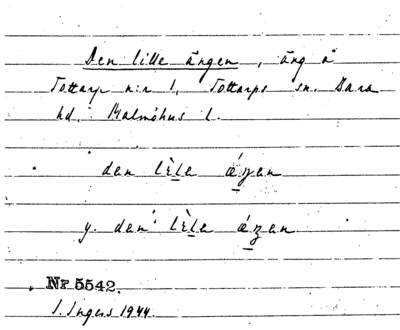 Den lille ängen, äng å
Tottarp n:r 1, Tottarps sn. Bara
hd. Malmöhus l.
den lè̱le ǽŋen
y. den lè̱le ǽŋen
Nr 5542.
I. Ingers 1944.